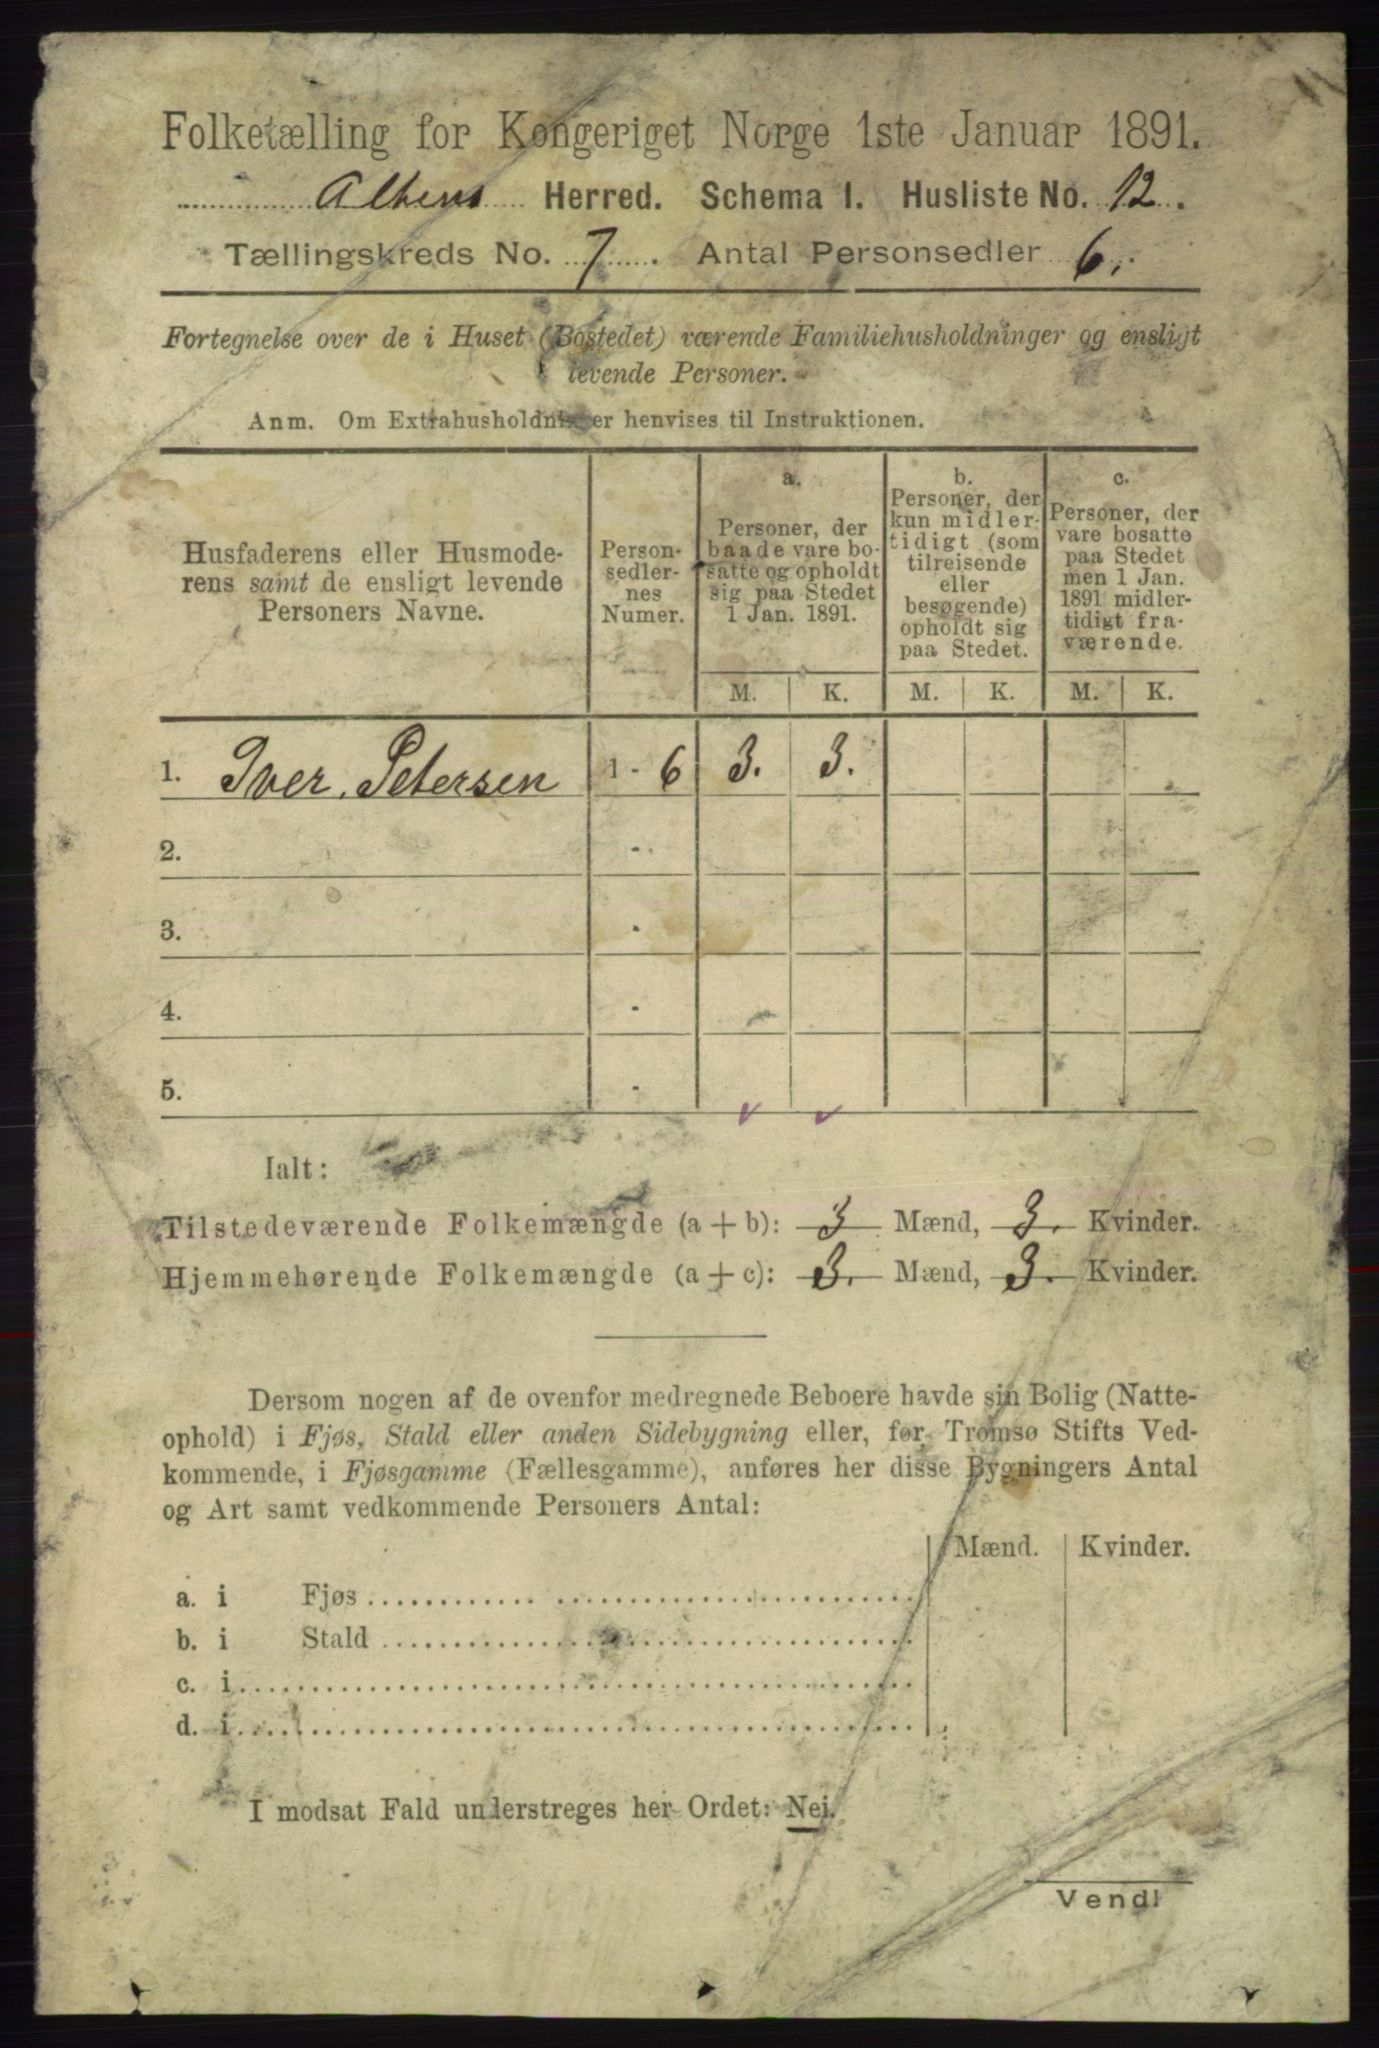 Folketælling for Kongeriget Norge 1ste Januar 1891.
Altens Herred. Schema 1. Husliste No. 12.
Tællingskreds No. 7. Antal Personsedler 6.
Fortegnelse over de i Huset (Bostedet) værende Familiehusholdninger og ensligt
levende Personer.
Anm. Om Extrahusholdninger henvises til Instruktionen.
Husfaderens eller Husmode-
rens samt de ensligt levende
Personers Navne.
Person-
sedler-
nes
Numer.
a.
Personer, der
baade vare bo-
satte og opholdt
sig paa Stedet
1 Jan. 1891.
b.
Personer, der
kun midler-
tidigt (som
tilreisende
eller
besøgende)
opholdt sig
paa Stedet.
c.
Personer, der
vare bosatte
paa Stedet
men 1 Jan.
1891 midler-
tidigt fra-
værende.
M. K. M. K. M. K.
1. Iver. Petersen 1 - 6 3. 3.
2. -
3. -
4. -
5. -
Ialt:
Tilstedeværende Folkemængde (a + b): 3 Mænd, 3. Kvinder.
Hjemmehørende Folkemængde (a + c): 3. Mænd, 3. Kvinder.
Dersom nogen af de ovenfor medregnede Beboere havde sin Bolig (Natte-
ophold) i Fjøs, Stald eller anden Sidebygning eller, for Tromsø Stifts Ved-
kommende, i Fjøsgamme (Fællesgamme), anføres her disse Bygningers Antal
og Art samt vedkommende Personers Antal:
Mænd. Kvinder.
a. i Fjøs
b. i Stald
c. i
d. i
I modsat Fald understreges her Ordet: Nei.
Vend!